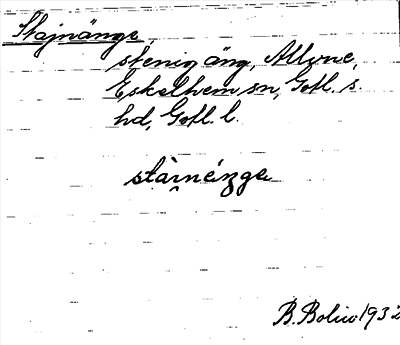 Stajnänge,
stenig äng, Allvne,
Eskelhem sn, Gotl. s.
hd, Gotl. l.
stàinénge
B. Bolin 1932